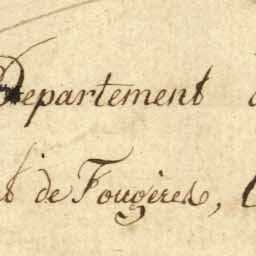 Departement
de Fougères,